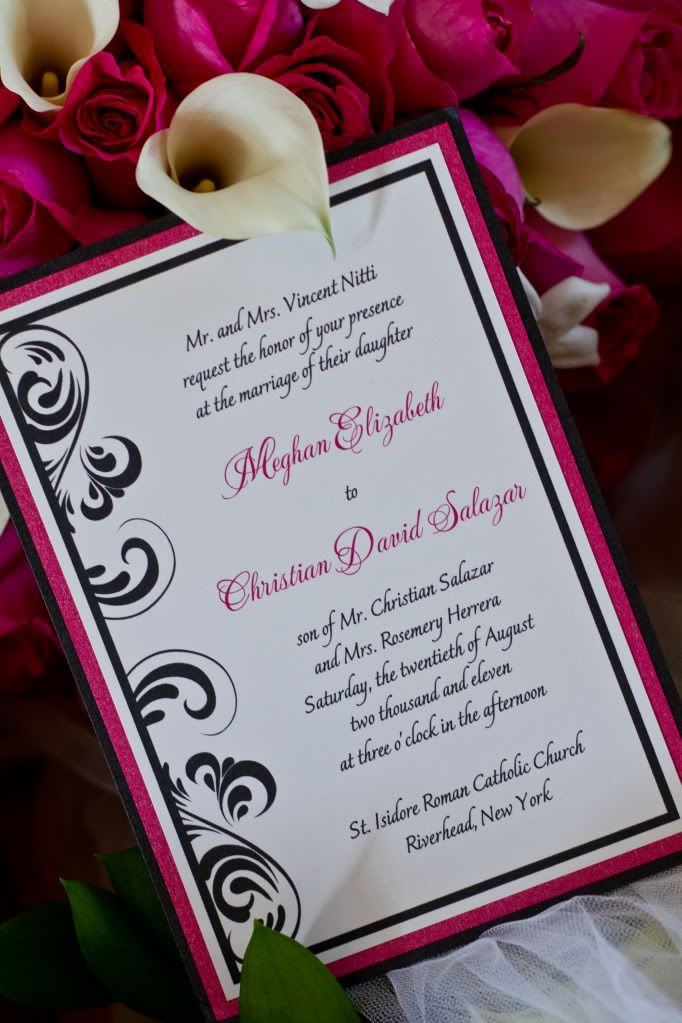 Mr. and Mrs. Vincent Nitti
request the honor of your presence
at the marriage of their daughter
Meghan Elizabeth
to
Christian David Salazar
son of Mr. Christian Salazar
and Mrs. Rosemery Herrera
Saturday, the twentieth of August
two thousand and eleven
at three o'clock in the afternoon
St. Isidore Roman Catholic Church
Riverhead, New York